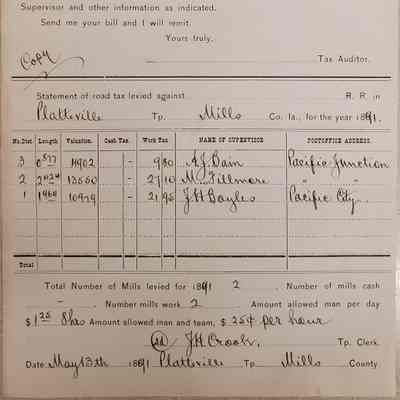 Supervisor and other information as indicated.
Send me your bill and I will remit.
Yours truly,
Copy
Tax Auditor.
Statement of road tax levied against R. R. in
Platteville Tp. Mills Co. Ia., for the year 1891.
No. Dist Length Valuation. Cash Tax Work Tax NAME OF SUPERVISOR POSTOFFICE ADDRESS.
3 - 9 80 A.J. Bain Pacific Junction
2 13550 - 27 10 M. Fillmore " "
1 10979 - 21 95 J.H. Bayles Pacific City
Total
Total Number of Mills levied for 1891 2 . Number of mills cash
- . Number mills work 2 Amount allowed man per day
$ 1 25 8 hrs Amount allowed man and team, $ 25¢ per hour
J.H. Crook, Tp. Clerk.
Date May 13th 1891 Platteville Tp Mills County